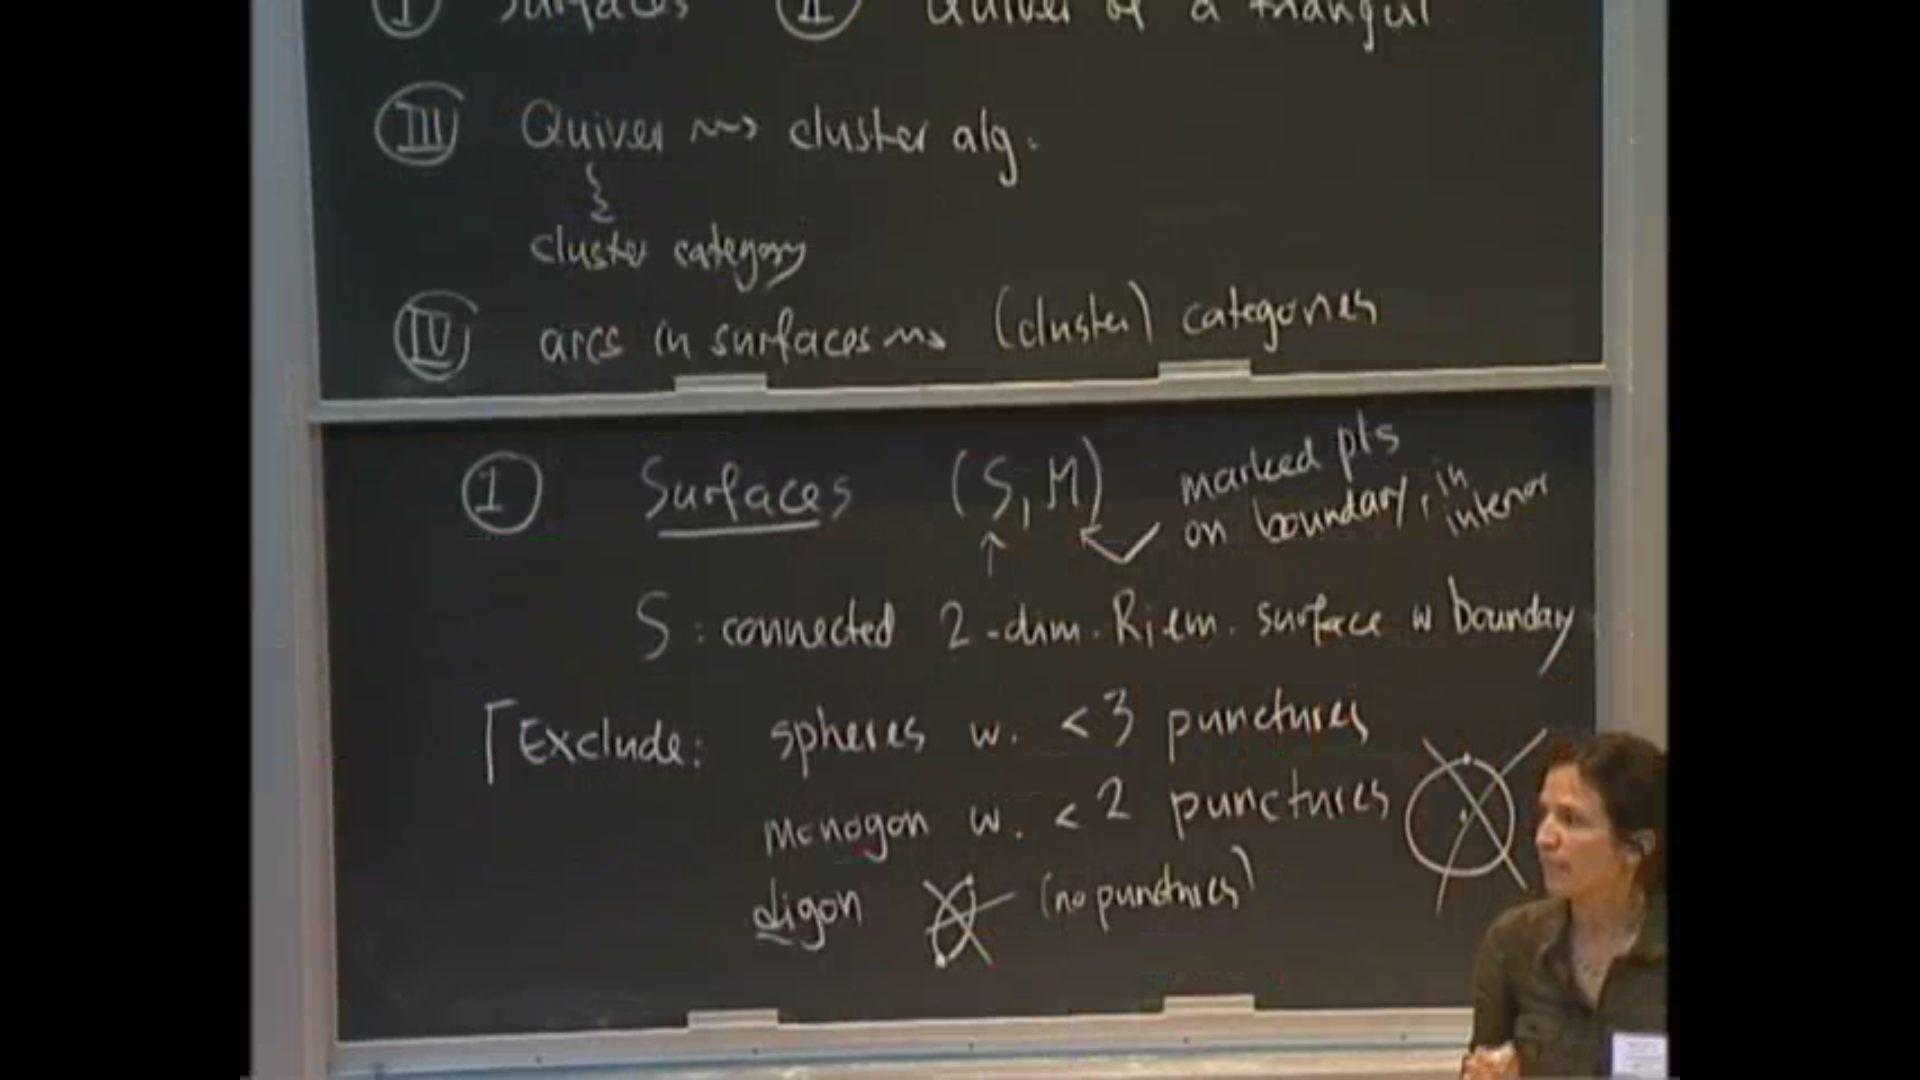 I Surfaces II Quiver of a triangul
III Quiver ⇝ cluster alg.
cluster category
IV arcs in surfaces ⇝ (cluster) categories
I Surfaces (S, M) marked pts
on boundary, in
interior
S : connected 2-dim. Riem. surface w boundary
Exclude: spheres w. < 3 punctures
monogon w. < 2 punctures
digon (no punctures)